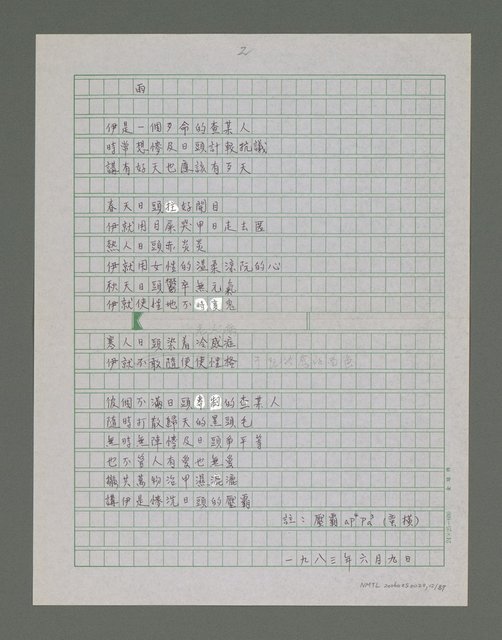 2
雨
伊是一個歹命的查某人
時常想慘及日頭計較抗議
講有好天也應該有歹天
春天日頭拄好開目
伊就用目屎哭甲日走去匿
熱人日頭赤炎炎
伊就用女性的溫柔涼阮的心
秋天日頭鬱卒無元氣
伊就使性地不時變鬼
寒人日頭染着冷感症
伊就不敢隨便使性格
彼個不滿日頭專制的查某人
隨時打散歸天的黑頭毛
無時無陣慘及日頭爭平等
也不管人有愛也無愛
攏共萬物沿甲濕漉漉
講伊是慘洗日頭的壓霸
註：壓霸 ap⁴ pa³ (蠻橫)
一九八三年六月九日